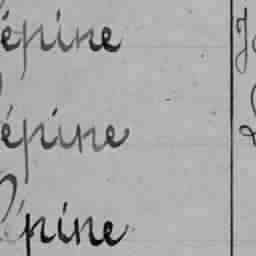 épine
épine
épine